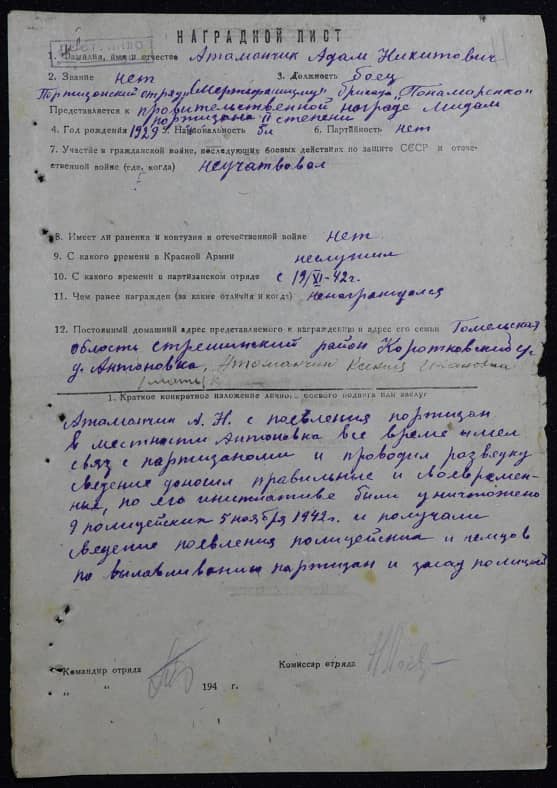 НАГРАДНОЙ ЛИСТ
1. Фамилия, имя и отчество Атаманчик Адам Никитович
2. Звание нет 3. Должность боец
Портизонский отряд "Смерть фашизму" бригада "Понамаренко"
Представляется к правительственной награде Медаль
портизана II степени
4. Год рождения 1929 5. Национальность бл 6. Партийность нет
7. Участие в гражданской войне, последующих боевых действиях по защите СССР и отече-
ственной войне (где, когда) неучатвовал
8. Имеет ли ранения и контузии в отечественной войне нет
9. С какого времени в Красной Армии неслужил
10. С какого времени в партизанском отряде с 19/XI-42г.
11. Чем ранее награжден (за какие отличия и когда) ненаграждался
12. Постоянный домашний адрес представляемого к награждению и адрес его семьи Гомельская
область стрешинский район Коротковский с/с
д. Антоновка, Атаманчик Ивановна
(мать)
1. Краткое конкретное изложение личного боевого подвига или заслуг
Атаманчик А. Н. с поевления портизан
в местности Антоновка все время имел
связ с партизанами и проводил разведку
сведение доносил правильные и своевремен-
ные, по его инициативе были уничтожено
9 полицейских 5 ноября 1942г. и получали
сведение поевления полицейских и немцов
по вылавливанию партизан и засад полицией
Командир отряда Комиссар отряда
" " 194 г.